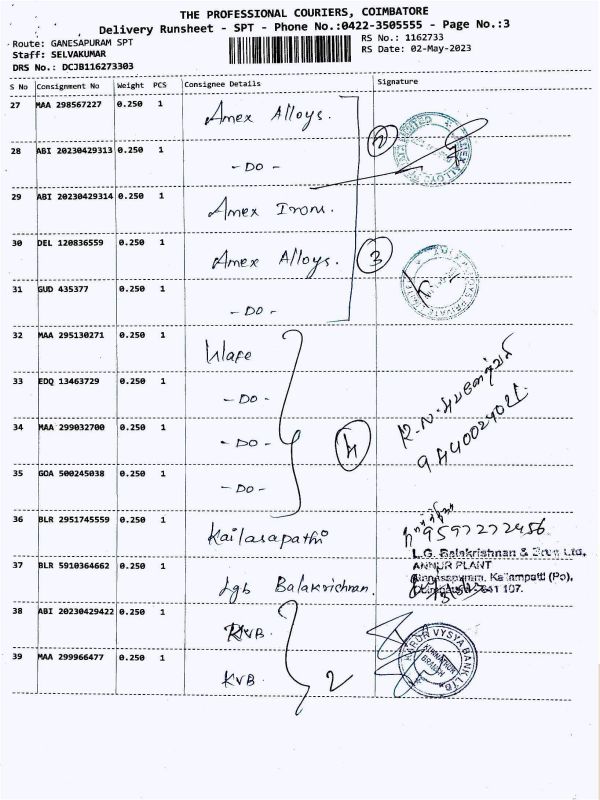 THE PROFESSIONAL COURIERS, COIMBATORE
Delivery Runsheet - SPT - Phone No.:0422-3505555 - Page No.:3
Route: GANESAPURAM SPT
RS No.: 1162733
Staff: SELVAKUMAR
RS Date: 02-May-2023
DRS No.: DCJB116273303
S No Consignment No Weight PCS Consignee Details Signature
27 MAA 298567227 0.250 1 Amex Alloys.
28 ABI 20230429313 0.250 1 - DO -
29 ABI 20230429314 0.250 1 Amex Irom.
30 DEL 120836559 0.250 1 Amex Alloys. 3
31 GUD 435377 0.250 1 - DO -
32 MAA 295130271 0.250 1
33 EDQ 13463729 0.250 1 - DO -
34 MAA 299032700 0.250 1 - DO - 4
35 GOA 500245038 0.250 1 - DO -
36 BLR 2951745559 0.250 1 Kailasapathi 9597272456
L.G. Balakrishnan & Bros Ltd.,
ANNUR PLANT
37 BLR 5910364662 0.250 1 Lgb Balakrichnan.
38 ABI 20230429422 0.250 1 KVB.
39 MAA 299966477 0.250 1 KVB. 2
KARUR VYSYA BANK LTD.
BRANCH